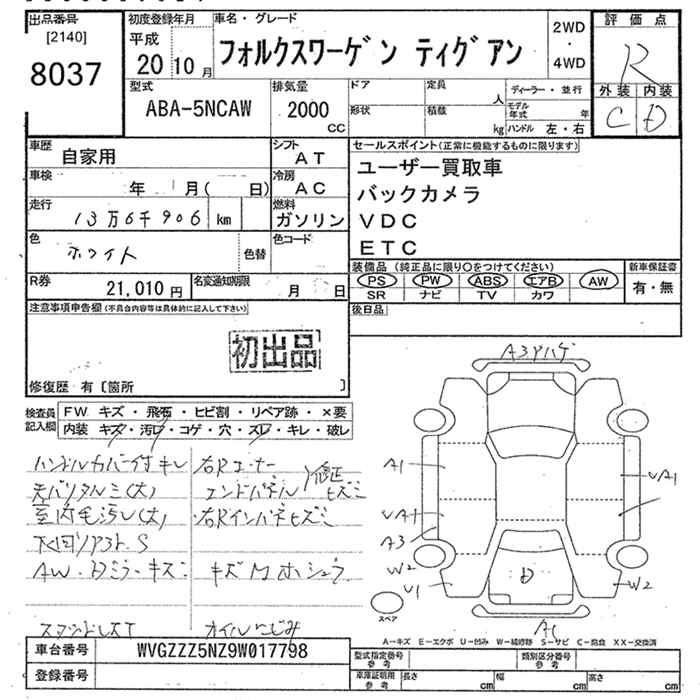 出品番号
[2140]
8037
初度登録年月
平成
20 10月
車名・グレード
フォルクスワーゲン ティグアン
2WD
・
4WD
評価点
R
外装 内装
C D
型式
ABA-5NCAW
排気量
2000
CC
ドア
形状
定員
人
積載
kg
ディーラー・並行
モデル年式 年
ハンドル 左・右
車歴
自家用
シフト
AT
車検
年 月( 日)
冷房
AC
走行
13万6千906 km
燃料
ガソリン
色
ホワイト
色替
色コード
R券
21,010円
名変通知期限
月 日
セールスポイント(正常に機能するものに限ります)
ユーザー買取車
バックカメラ
VDC
ETC
装備品(純正品に限り○をつけてください)
新車保証書
PS PW ABS エアB AW
有・無
SR ナビ TV カワ
後日品
注意事項申告欄(不具合内容等は具体的に記入して下さい)
初出品
修復歴 有〔箇所 〕
検査員
記入欄
FW キズ・飛石・ヒビ割・リペア跡・×要
内装 キズ・汚レ・コゲ・穴・スレ・キレ・破レ
ハンドルカバー付キレ
室内毛汚レ(大)
AW・Dミラーキズ
右Rコーナー
エンドパネル
修正
ヒズミ
右Rインパネヒズミ
オイルにじみ
A3アハゲ
A1
UA1
UA1
A3
W2
U1
D
W2
A1
スペア
A−キズ E−エクボ U−凹み W−補修跡 S−サビ C−腐食 XX−交換済
車台番号
WVGZZZ5NZ9W017798
登録番号
型式指定番号
参考
類別区分番号
参考
車庫証明用
参考
長さ cm
幅 cm
高さ cm